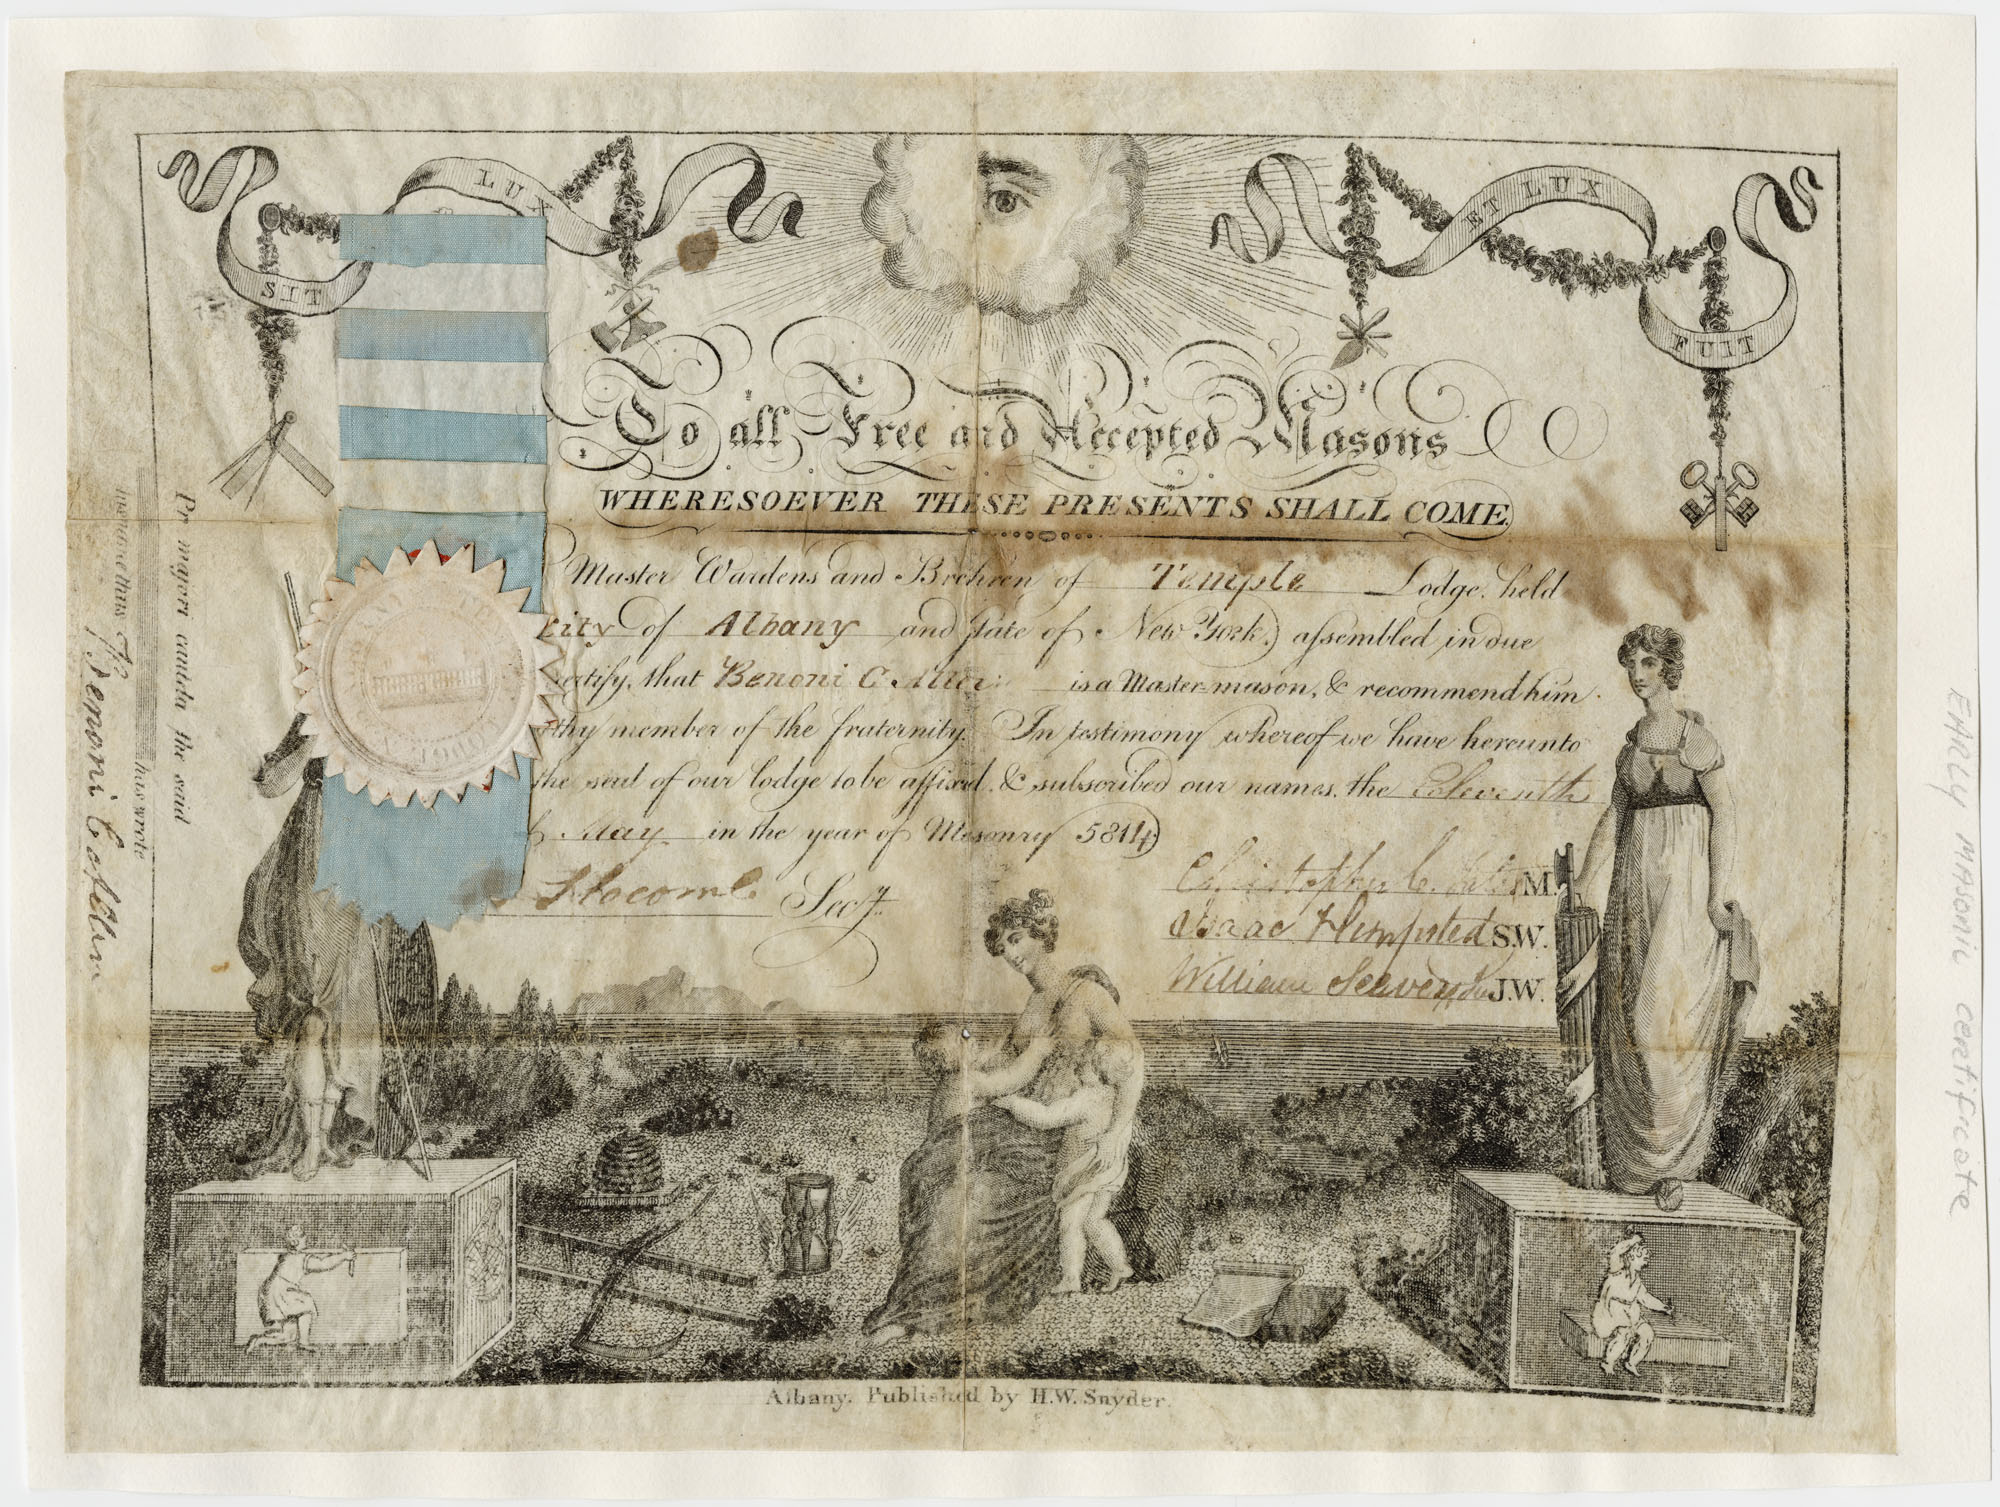 SIT
LUX
ET LUX
FUIT
To all Free and Accepted Masons
WHERESOEVER THESE PRESENTS SHALL COME
Master Wardens and Brehren of Temple Lodge, held
City of Albany and State of New York, assembled in due
certify, that Benoni C. is a Master-mason, & recommend him
member of the fraternity. In testimony whereof we have hereunto
the seal of our lodge to be affixed, & subscribed our names, the Eleventh
May in the year of Masonry 5814
Slocomb Secy.
Christopher C. M.
Isaac Hempsted S.W.
William J.W.
Albany. Published by H.W. Snyder.
Pr. majori cautela the said
Benoni C
his wrote
EARLY MASONIC CERTIFICATE